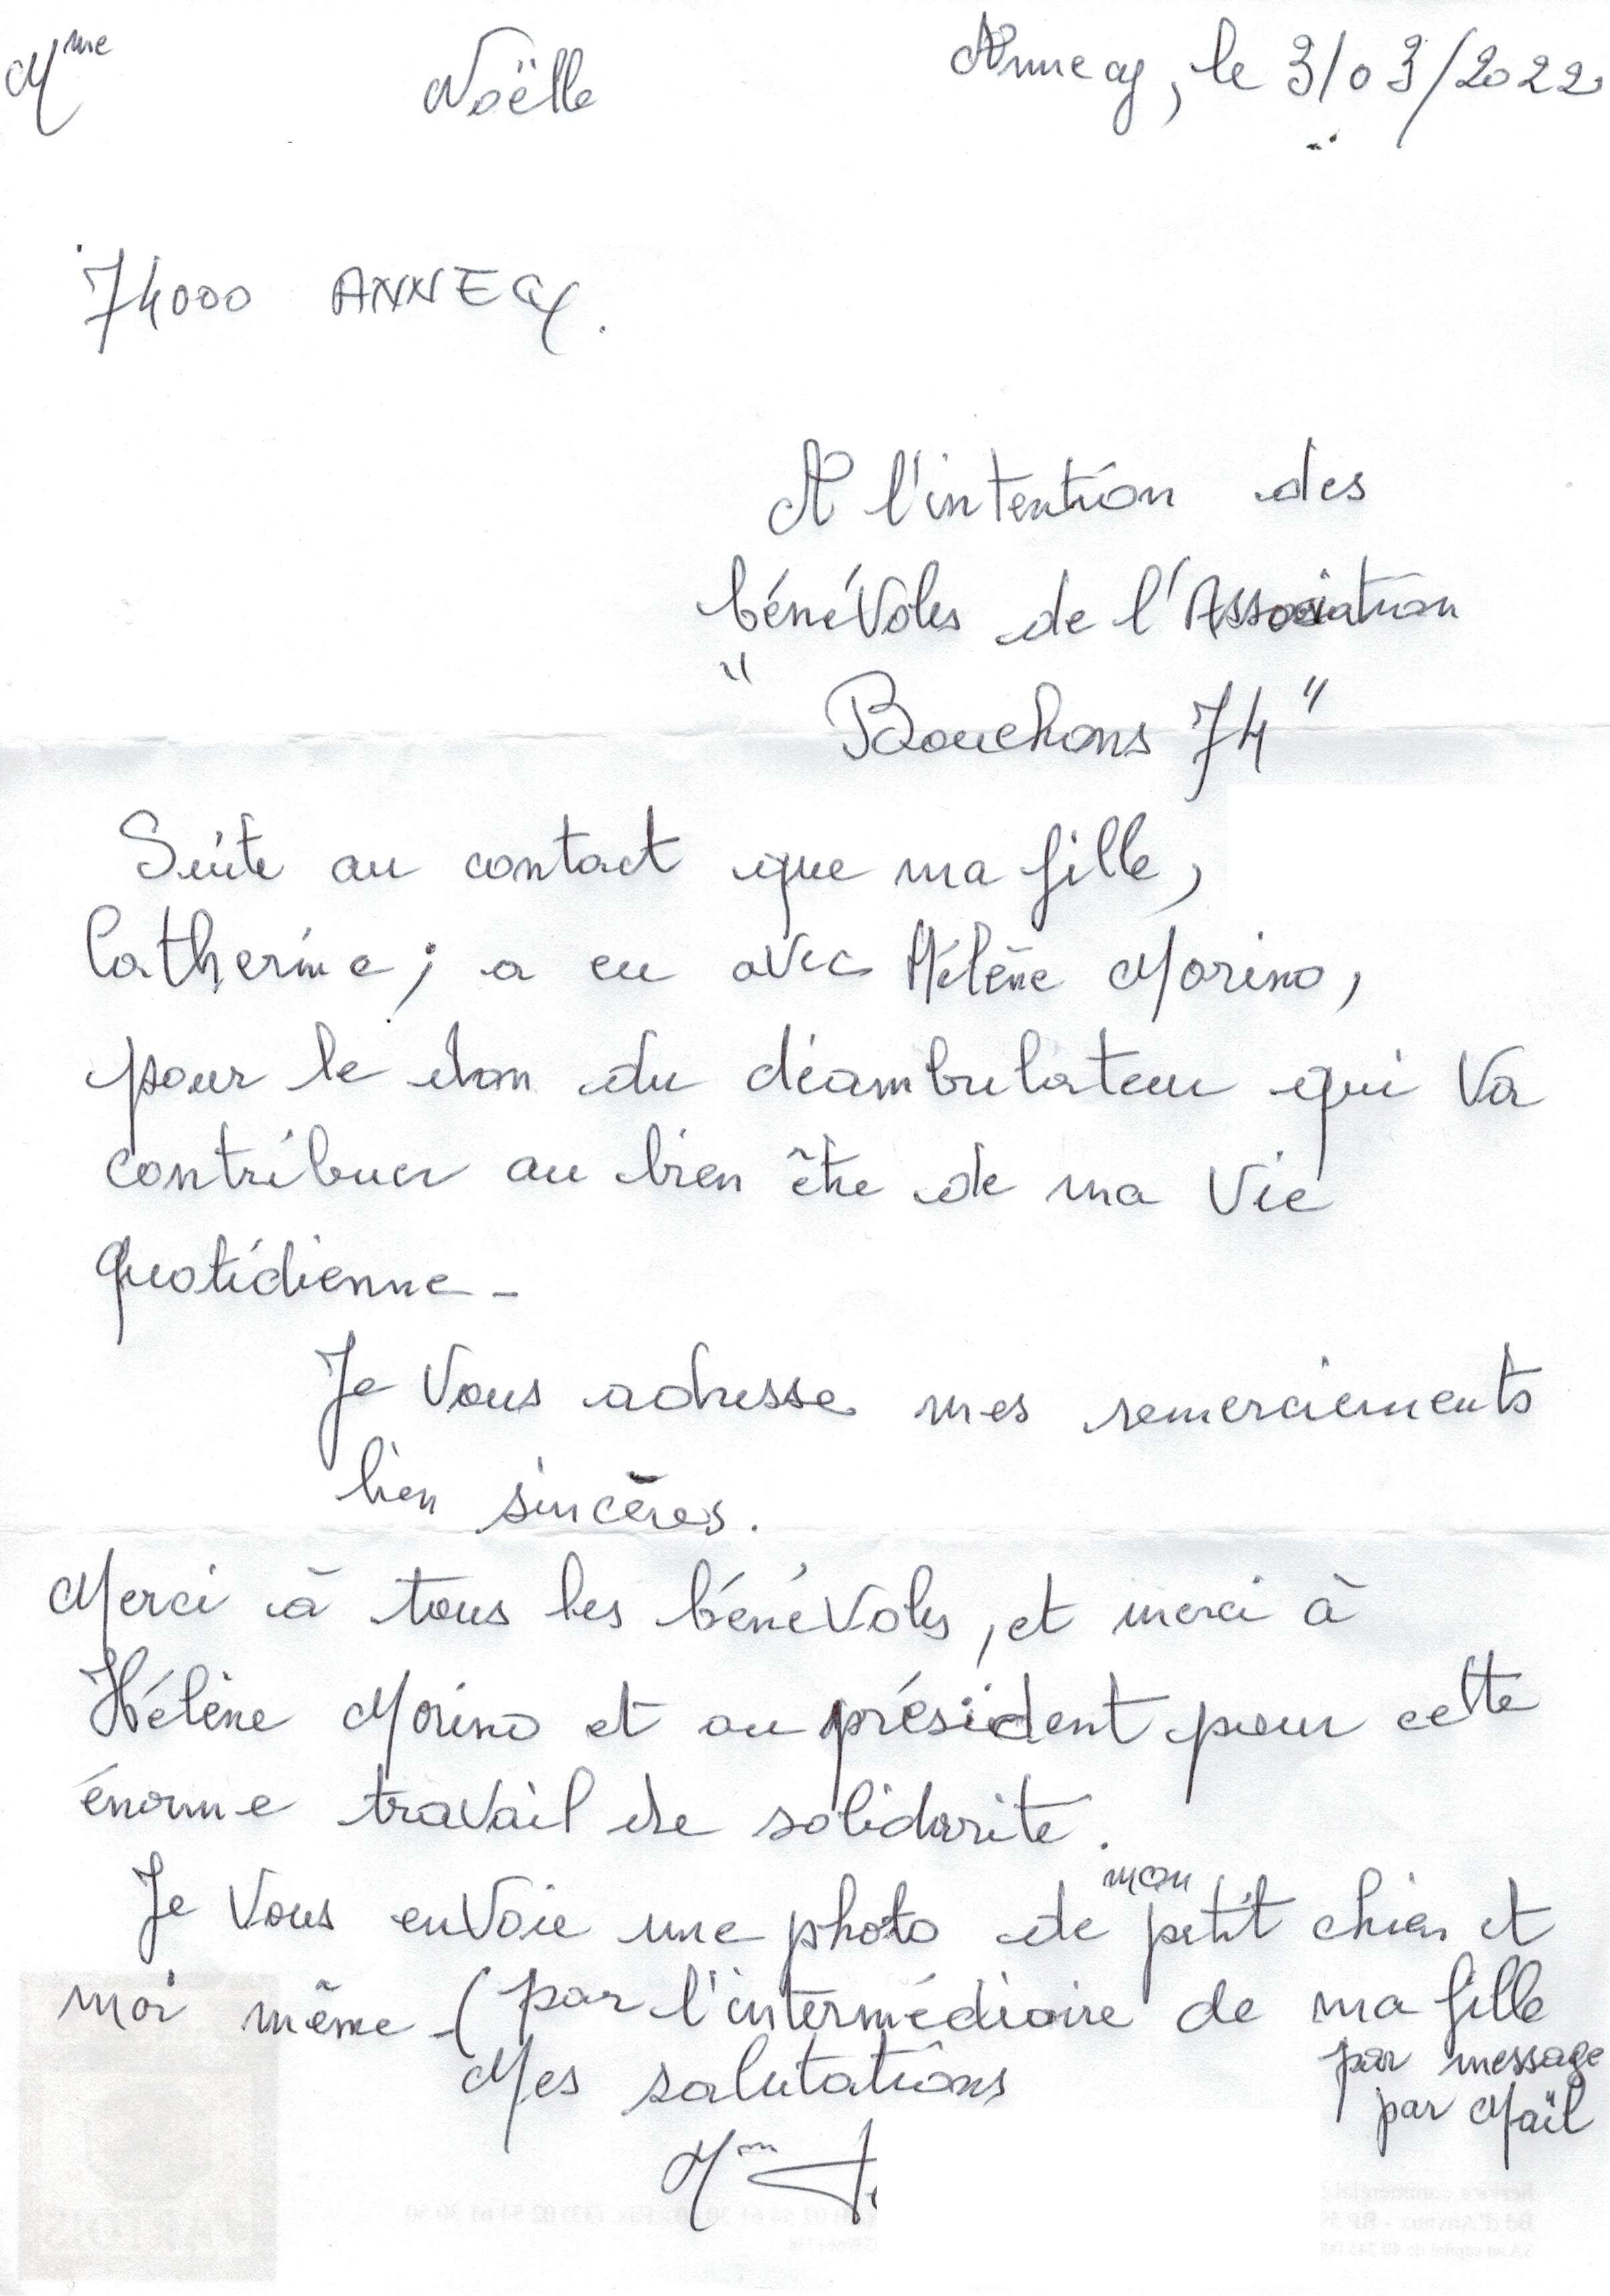 Mme Noëlle
Annecy, le 3/03/2022
74000 ANNECY.
A l'intention des
bénévoles de l'Association
" Bouchons 74 "
Suite au contact que ma fille,
Catherine, a eu avec Hélène Morino,
pour le don du déambulateur qui va
contribuer au bien être de ma vie
quotidienne -
Je vous adresse mes remerciements
bien sincères.
Merci à tous les bénévoles, et merci à
Hélène Morino et au président pour cette
énorme travail de solidarité.
Je vous envoie une photo de mon petit chien et
moi même - (par l'intermédiaire de ma fille
par message
par Maïl
Mes salutations
Mme